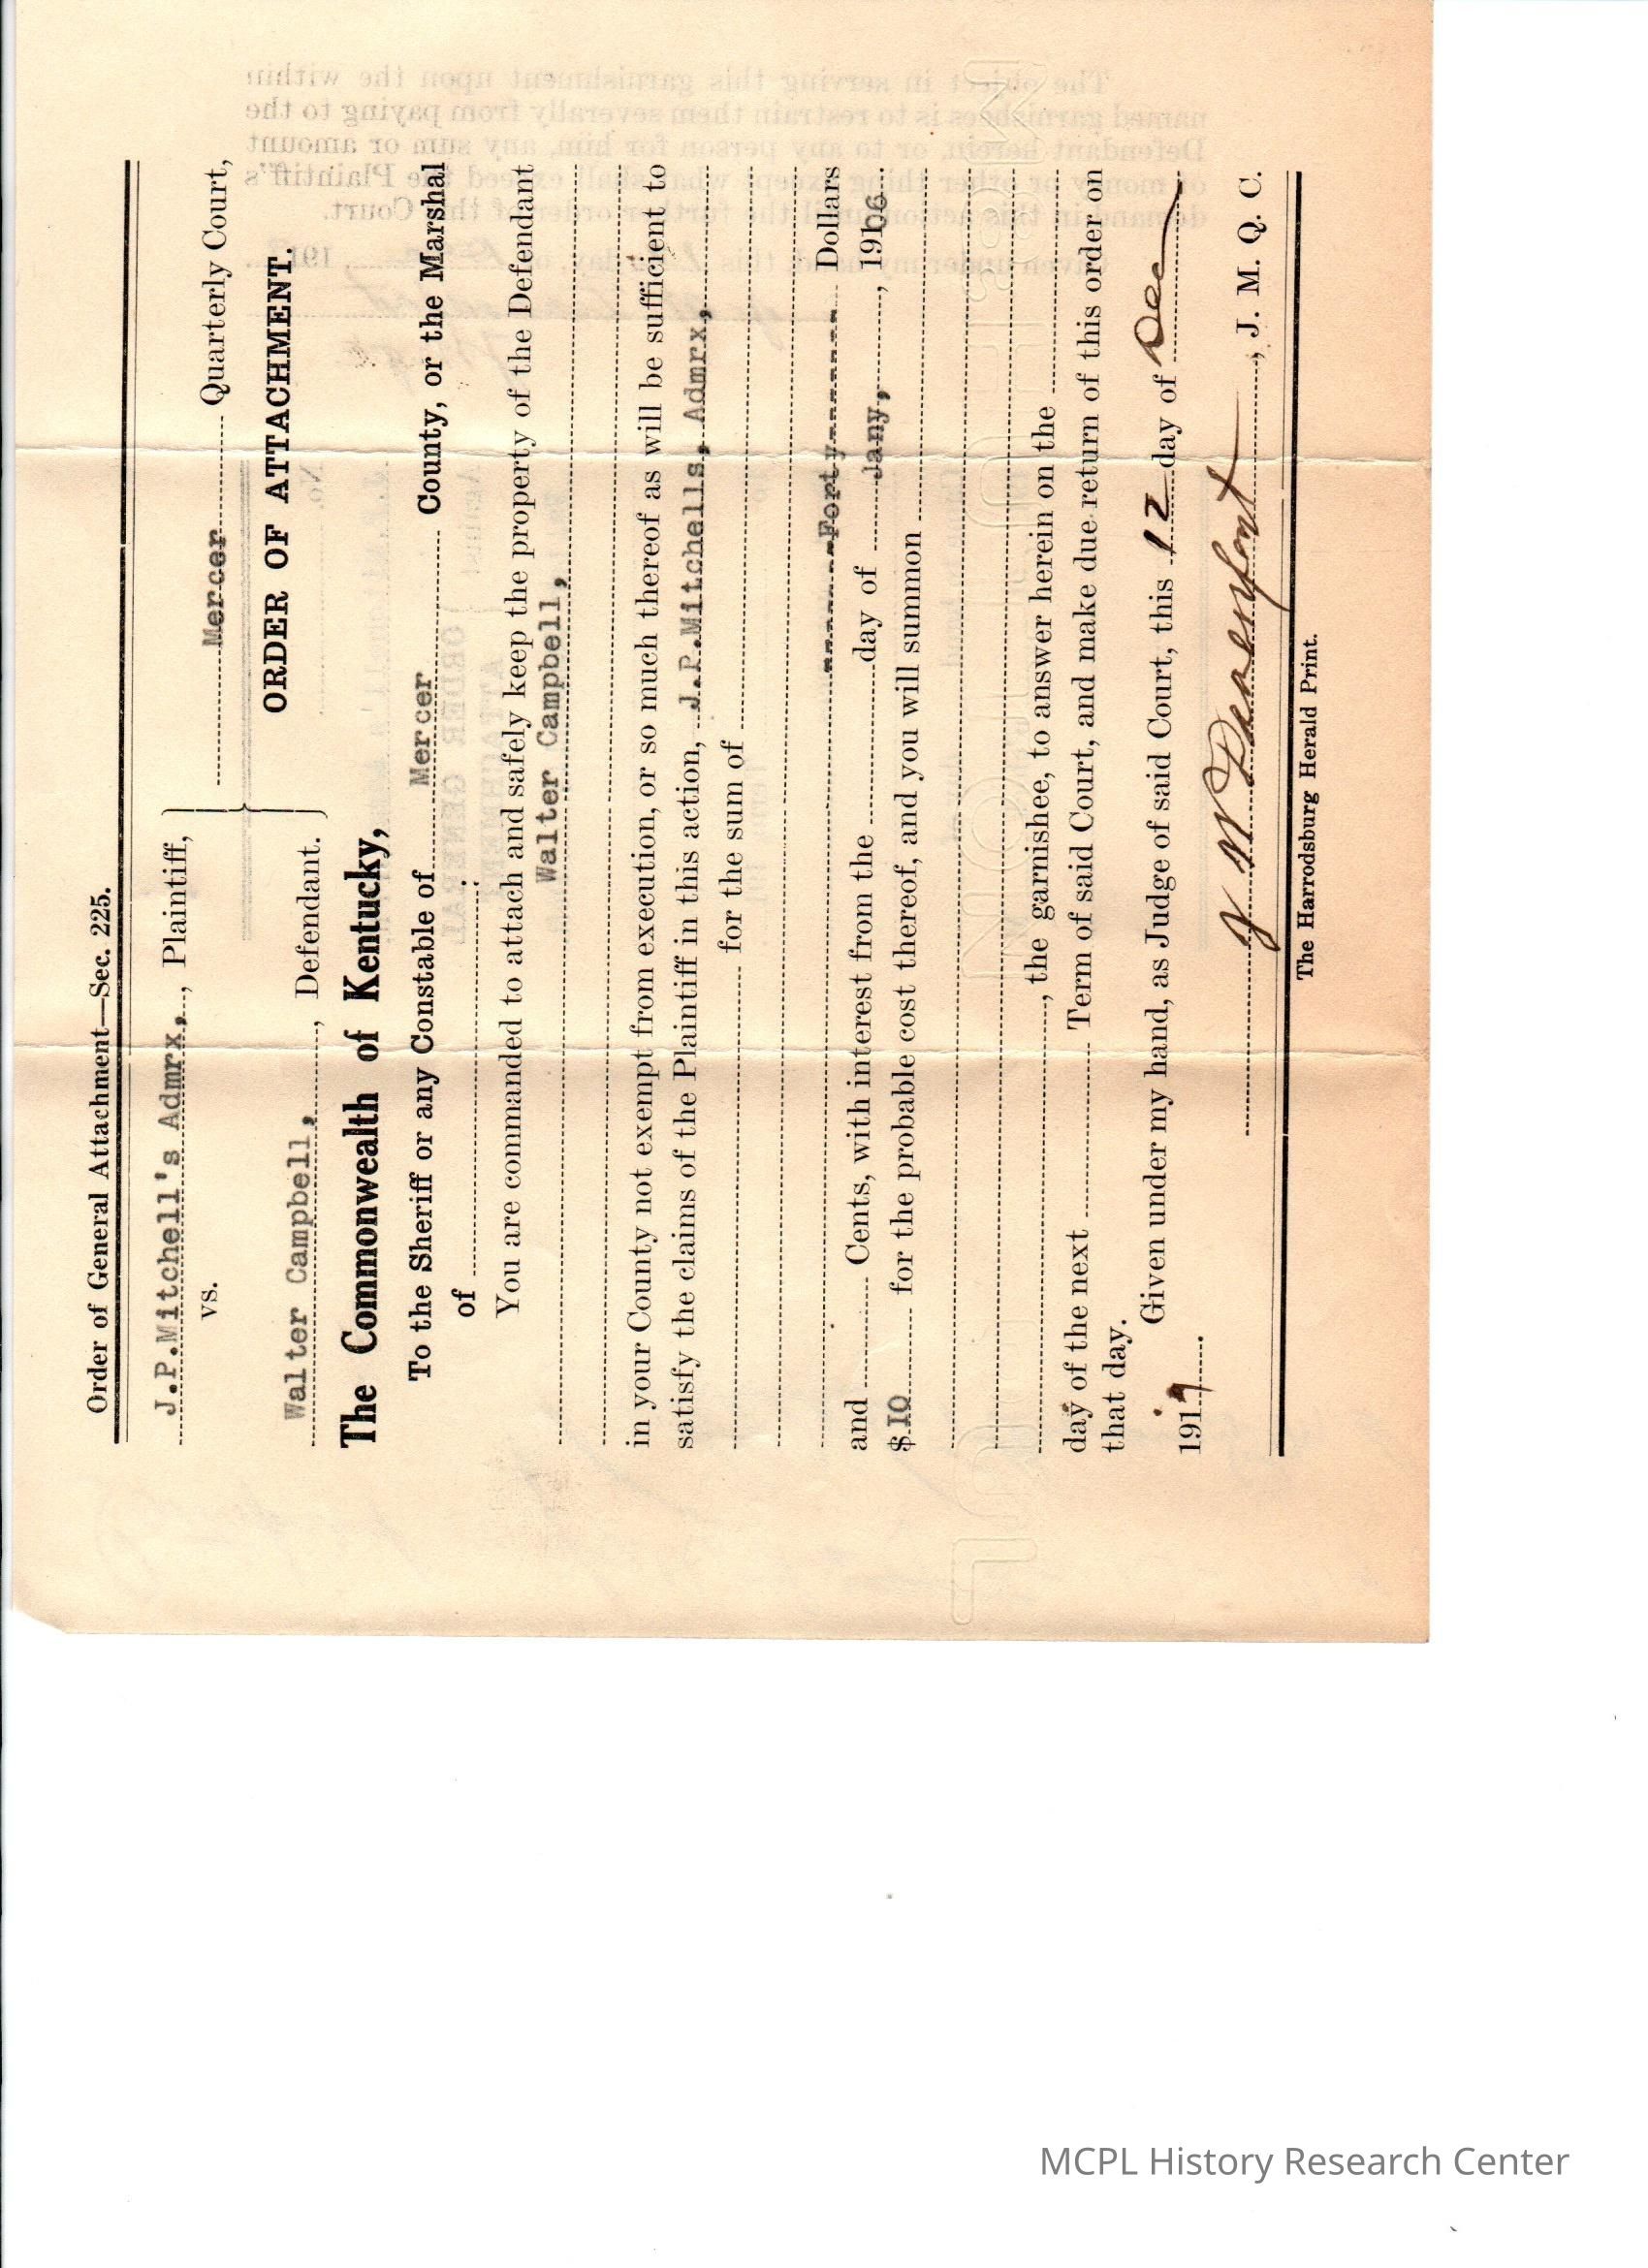 Order of General Attachment—Sec. 225.
J.P.Mitchell's Admrx, Plaintiff,
vs.
Walter Campbell, Defendant.
Mercer Quarterly Court,
ORDER OF ATTACHMENT.
The Commonwealth of Kentucky,
To the Sheriff or any Constable of Mercer County, or the Marshal
of
You are commanded to attach and safely keep the property of the Defendant
Walter Campbell,
in your County not exempt from execution, or so much thereof as will be sufficient to
satisfy the claims of the Plaintiff in this action, J.P.Mitchells, Admrx,
for the sum of
Forty Dollars
and Cents, with interest from the day of Jany, 1906
$10 for the probable cost thereof, and you will summon
, the garnishee, to answer herein on the
day of the next Term of said Court, and make due return of this order on
that day.
Given under my hand, as Judge of said Court, this 12 day of Dec
1919
, J. M. Q. C.
The Harrodsburg Herald Print.
The object in serving this garnishment upon the within
named garnishees is to restrain them severally from paying to the
Defendant herein, or to any person for him, any sum or amount
of money or other thing except what shall exceed the Plaintiff's
demand in this action until the further order of the Court.
MCPL History Research Center